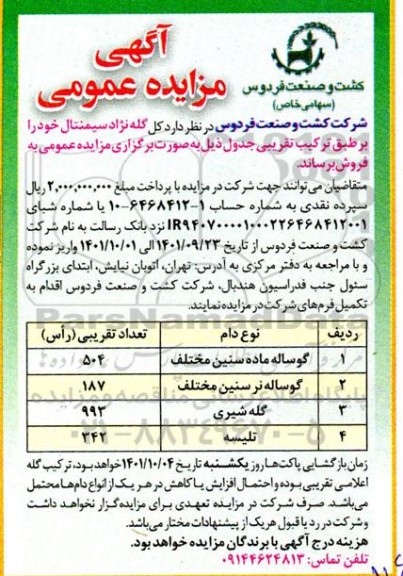 آگهی
مزایده عمومی
کشت و صنعت فردوس
(سهامی خاص)
شرکت کشت و صنعت فردوس در نظر دارد کل گله نژاد سیمنتال خود را
بر طبق ترکیب تقریبی جدول ذیل به صورت برگزاری مزایده عمومی به
فروش برساند.
متقاضیان می‌توانند جهت شرکت در مزایده با پرداخت مبلغ ۲,۰۰۰,۰۰۰,۰۰۰ ریال
سپرده نقدی به شماره حساب ۱-۶۴۶۸۴۱۲-۱۰ یا شماره شبای
IR۹۴۰۷۰۰۰۰۱۰۰۰۲۲۶۴۶۸۴۱۲۰۰۱ نزد بانک رسالت به نام شرکت
کشت و صنعت فردوس از تاریخ ۱۴۰۱/۰۹/۲۳ الی ۱۴۰۱/۱۰/۰۱ واریز نموده
و با مراجعه به دفتر مرکزی به آدرس: تهران، اتوبان نیایش، ابتدای بزرگراه
سئول جنب فدراسیون هندبال، شرکت کشت و صنعت فردوس اقدام به
تکمیل فرم‌های شرکت در مزایده نمایند.
ردیف نوع دام تعداد تقریبی (رأس)
۱ گوساله ماده سنین مختلف ۵۰۴
۲ گوساله نر سنین مختلف ۱۸۷
۳ گله شیری ۹۹۳
۴ تلیسه ۳۴۲
زمان بازگشایی پاکت‌ها روز یکشنبه تاریخ ۱۴۰۱/۱۰/۰۴ خواهد بود، ترکیب گله
اعلامی تقریبی بوده و احتمال افزایش یا کاهش در هر یک از انواع دام‌ها محتمل
می‌باشد. صرف شرکت در مزایده تعهدی برای مزایده‌گزار نخواهد داشت
و شرکت در رد یا قبول هریک از پیشنهادات مختار می‌باشد.
هزینه درج آگهی با برندگان مزایده خواهد بود.
تلفن تماس: ۰۹۱۴۴۶۲۴۸۱۳